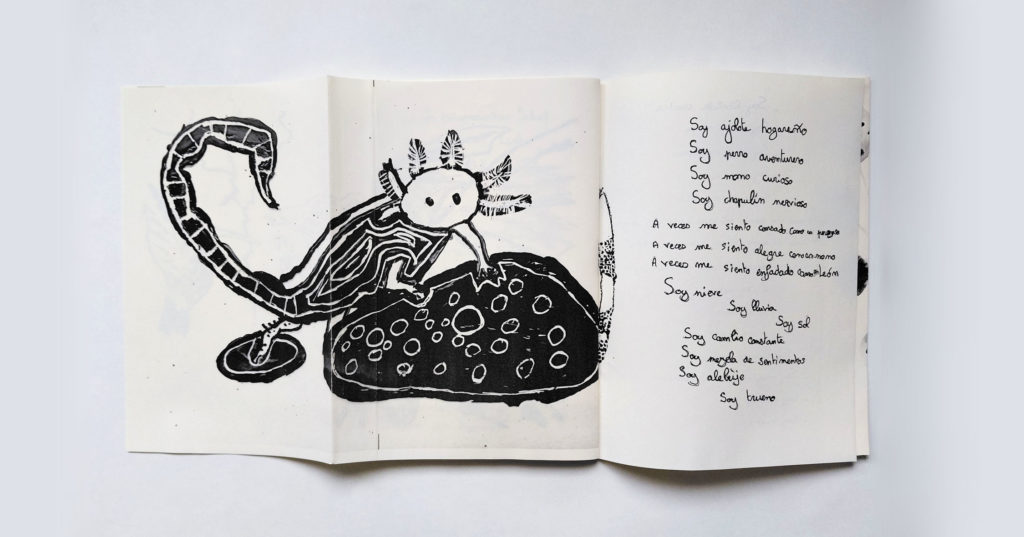 Soy ajolote hogareño
Soy perro aventurero
Soy mono curioso
Soy chapulín nervioso
A veces me siento cansado como un
A veces me siento alegre como mono
A veces me siento enfadado como león
Soy nieve
Soy lluvia
Soy sol
Soy cambio constante
Soy mezcla de sentimientos
Soy alebrije
Soy trueno